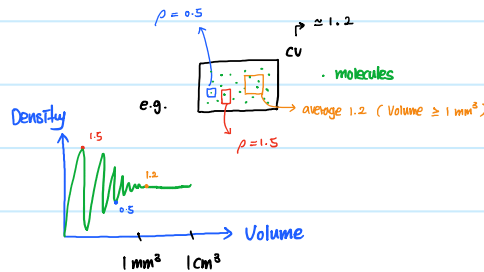 ρ = 0.5
≃ 1.2
CV
• molecules
e.g.
average 1.2 ( Volume ≥ 1 mm³ )
ρ = 1.5
Density
1.5
1.2
0.5
Volume
1 mm³
1 cm³